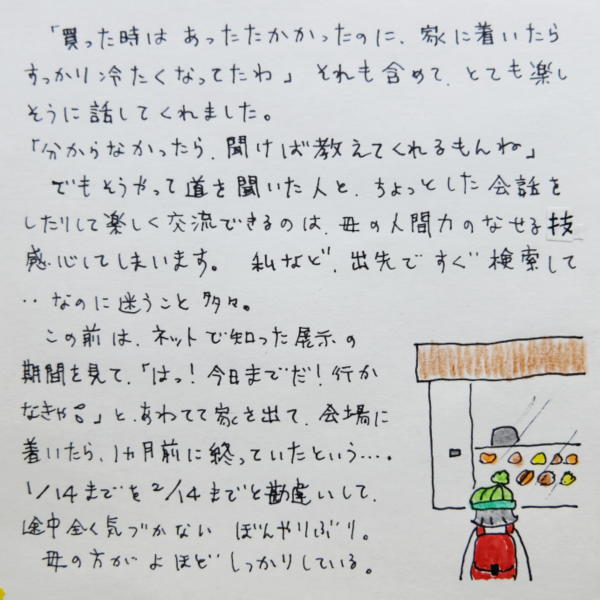 「買った時は あったたかかったのに、家に着いたら
すっかり冷たくなってたわ」 それも含めて、とても楽し
そうに話してくれました。
「分からなかったら、聞けば教えてくれるもんね」
でもそうやって道を聞いた人と、ちょっとした会話を
したりして楽しく交流できるのは、母の人間力のなせる技
感心してしまいます。 私など、出先ですぐ検索して
‥なのに迷うこと多々。
この前は、ネットで知った展示の
期間を見て、「はっ！今日までだ！行か
なきゃ。」と、あわてて家を出て、会場に
着いたら、1ヵ月前に終っていたという…。
1/14までを2/14までと勘違いして、
途中全く気づかない ぼんやりぶり。
母の方がよほどしっかりしている。